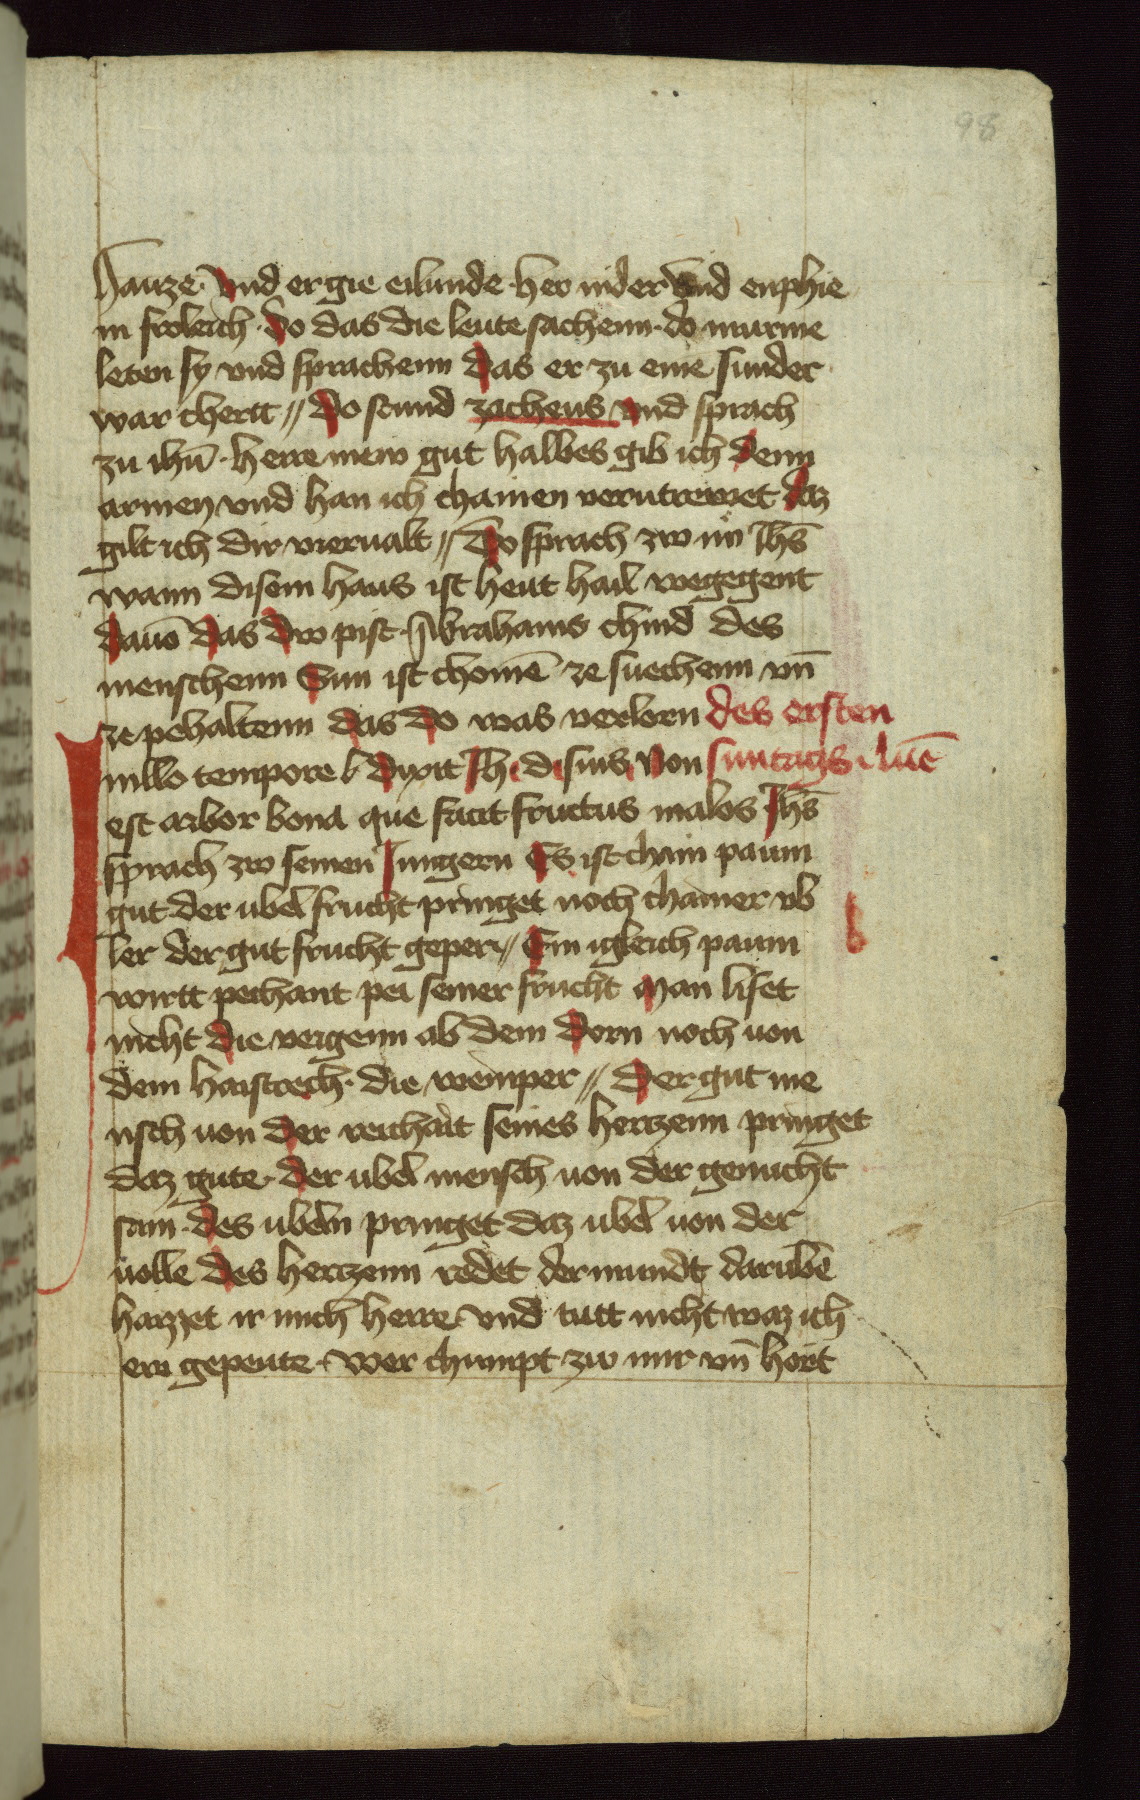 98
Hauze· vnd er gie eilunde· her nider vnd enphie
in froleich· do das die leute sachenn· do murme
leten sy vnd sprachenn das er zu eine sunder
war chertt // Do stund zacheus vnd sprach
zu ihū· herre mein gut halbes gib ich denn
armen vnd han ich chainen verutrewet daz
gilt ich dir vieruakt // Do sprach zw im Ihs̄
wann disem haus ist heut hail wegegent
dauō das dw pist· Abrahams chind des
menschenn Sun ist chomē ze suechenn vn̄
ze pehaltenn das do was verlorn des ersten
In illo tempore b dixit Ih· di suis· Non suntags i lucē
est arbor bona que facit fructus malos Ihs̄
sprach zw seinen Iungern Es ist chain paum
gut der ubel frucht pringet noch chainer vb
ler der gut frucht geper // Ein igleich paum
wirtt pechant pei seiner frucht Man liset
nicht die veigenn ab dem dorn noch von
dem haistrech· die weinper // Der gut me
nsch von der reichait seines hertzenn pringet
daz gute· der ubel mensch von der genucht
sam· des ubeln pringet daz ubel von der
uolle des hertzenn redet der mundt darubē
hazzet ir mich herre vnd tutt nicht waz ich
eu gepeute· Wer chumpt zw mir vn̄ hort